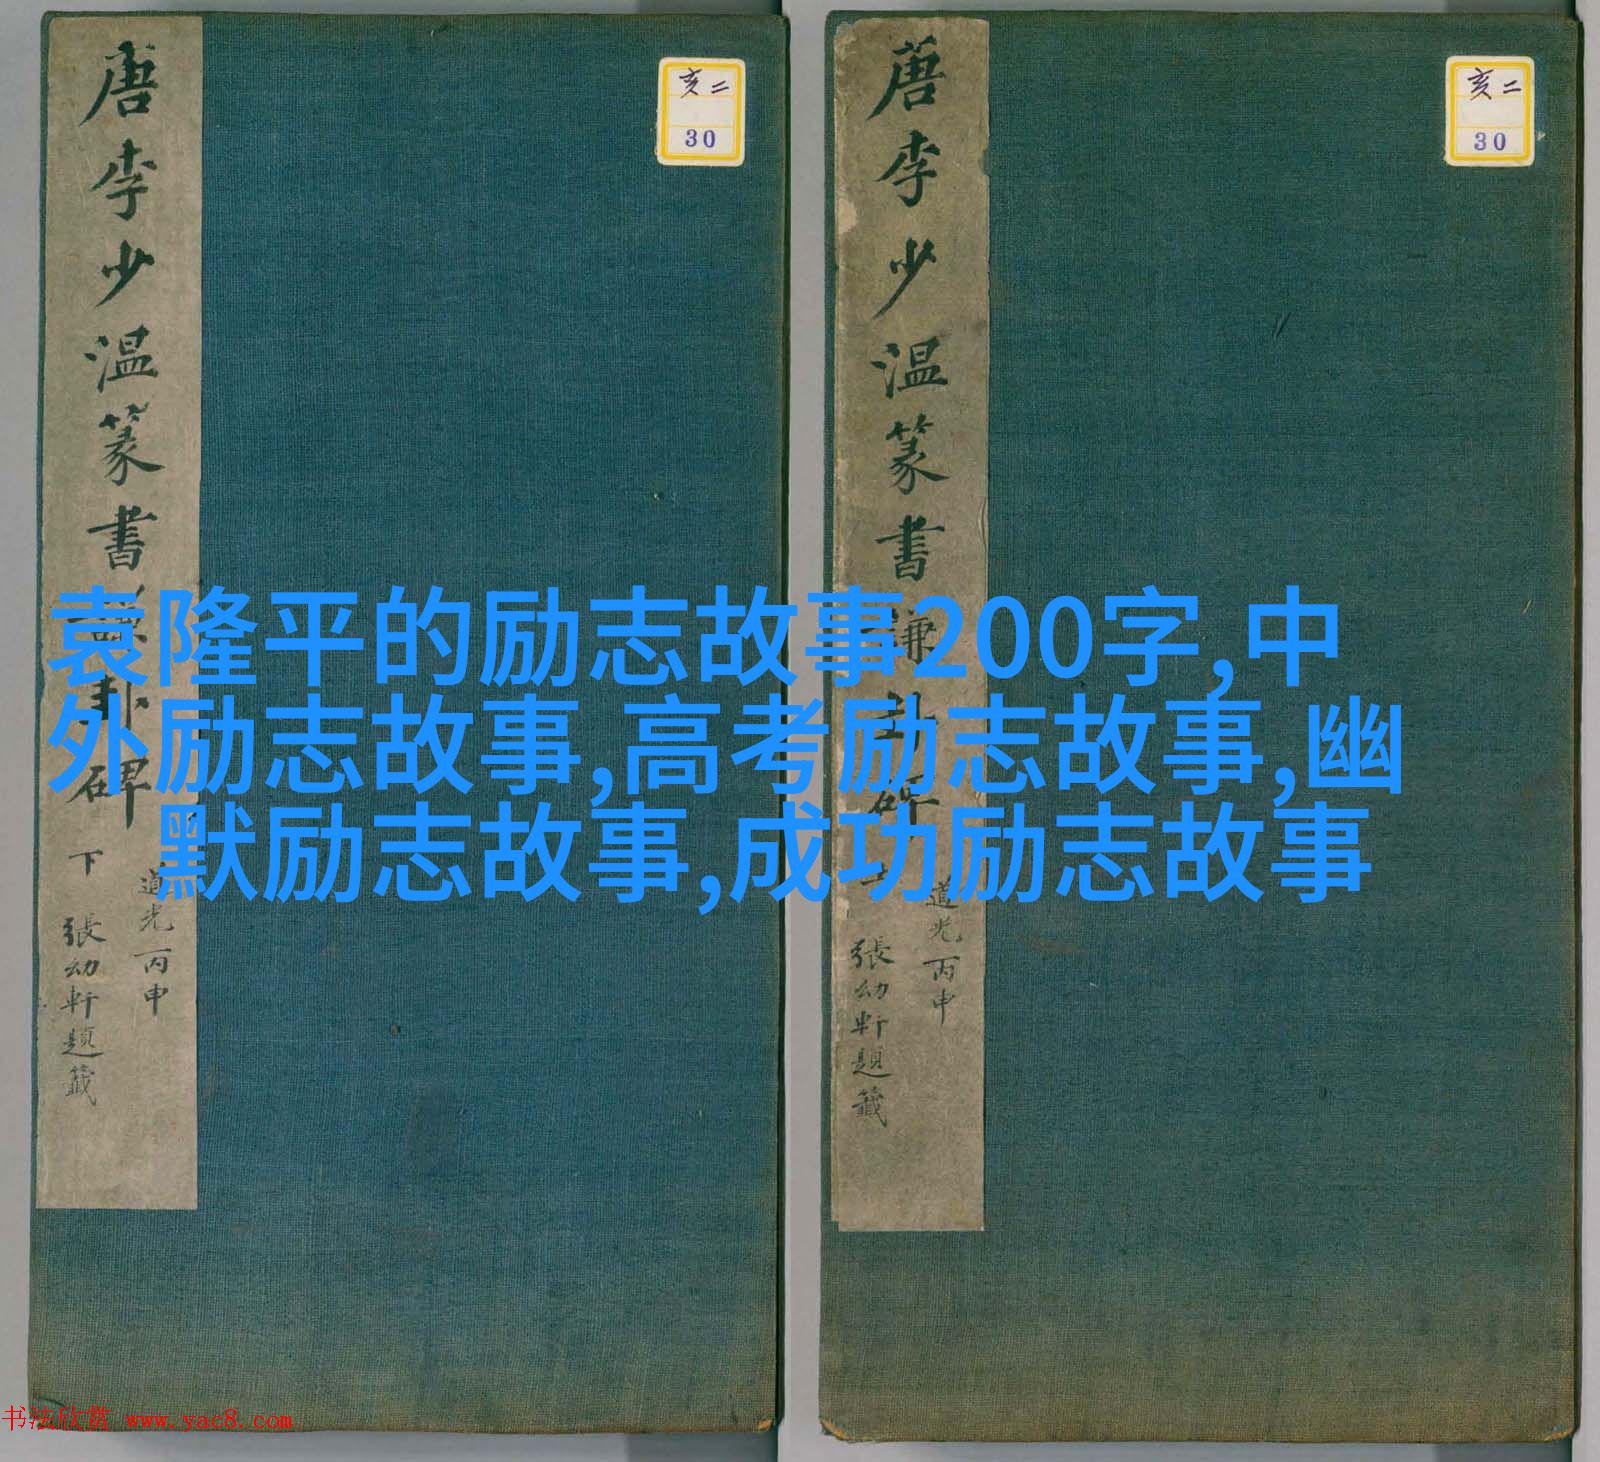 唐李少温篆書謙卦碑
下
道光丙申
張幼軒題籤
亥二
30
唐李少温篆書謙卦碑
上
道光丙申
張幼軒題籤
亥二
30
袁隆平的励志故事200字,中
外励志故事,高考励志故事,幽
默励志故事,成功励志故事
书法欣赏 www.yac8.com